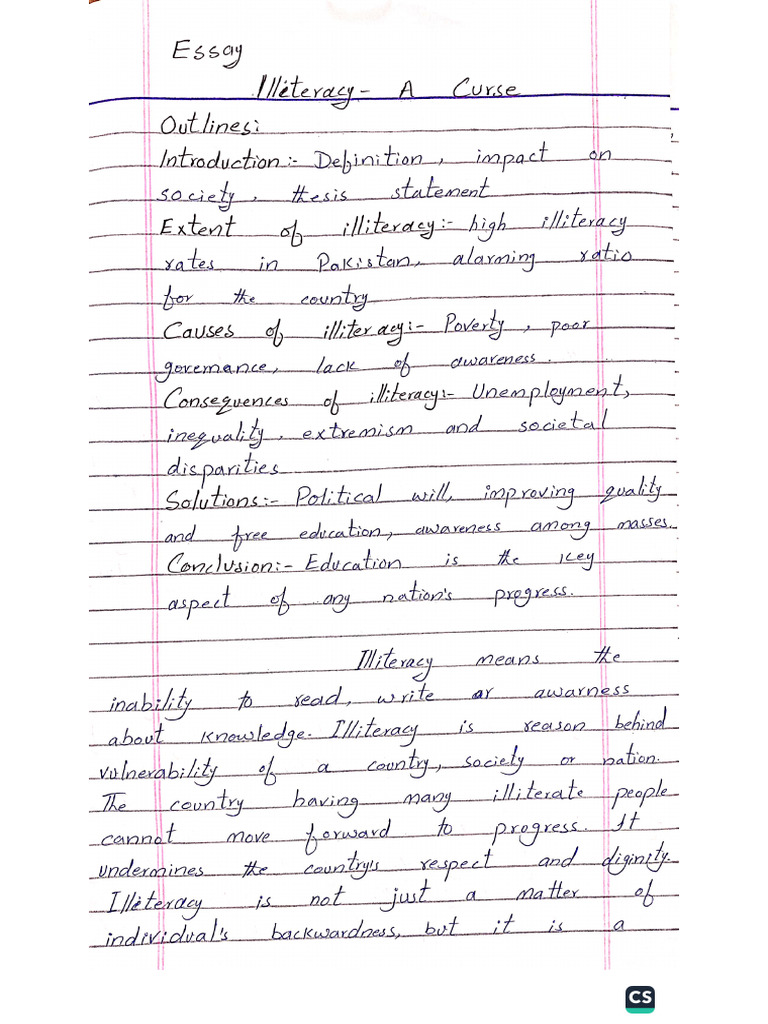 Essay
Illiteracy- A Curse
Outlines:
Introduction:- Definition, impact on
society, thesis statement
Extent of illiteracy:- high illiteracy
rates in Pakistan, alarming ratio
for the country
Causes of illiteracy:- Poverty, poor
governance, lack of awareness.
Consequences of illiteracy:- Unemployment,
inequality, extremism and societal
disparities
Solutions:- Political will, improving quality
and free education, awareness among masses.
Conclusion:- Education is the key
aspect of any nation's progress.
Illiteracy means the
inability to read, write or awarness
about knowledge. Illiteracy is reason behind
vulnerability of a country, society or nation.
The country having many illiterate people
cannot move forward to progress. It
undermines the country's respect and diginity.
Illiteracy is not just a matter of
individual's backwardness, but it is a
CS